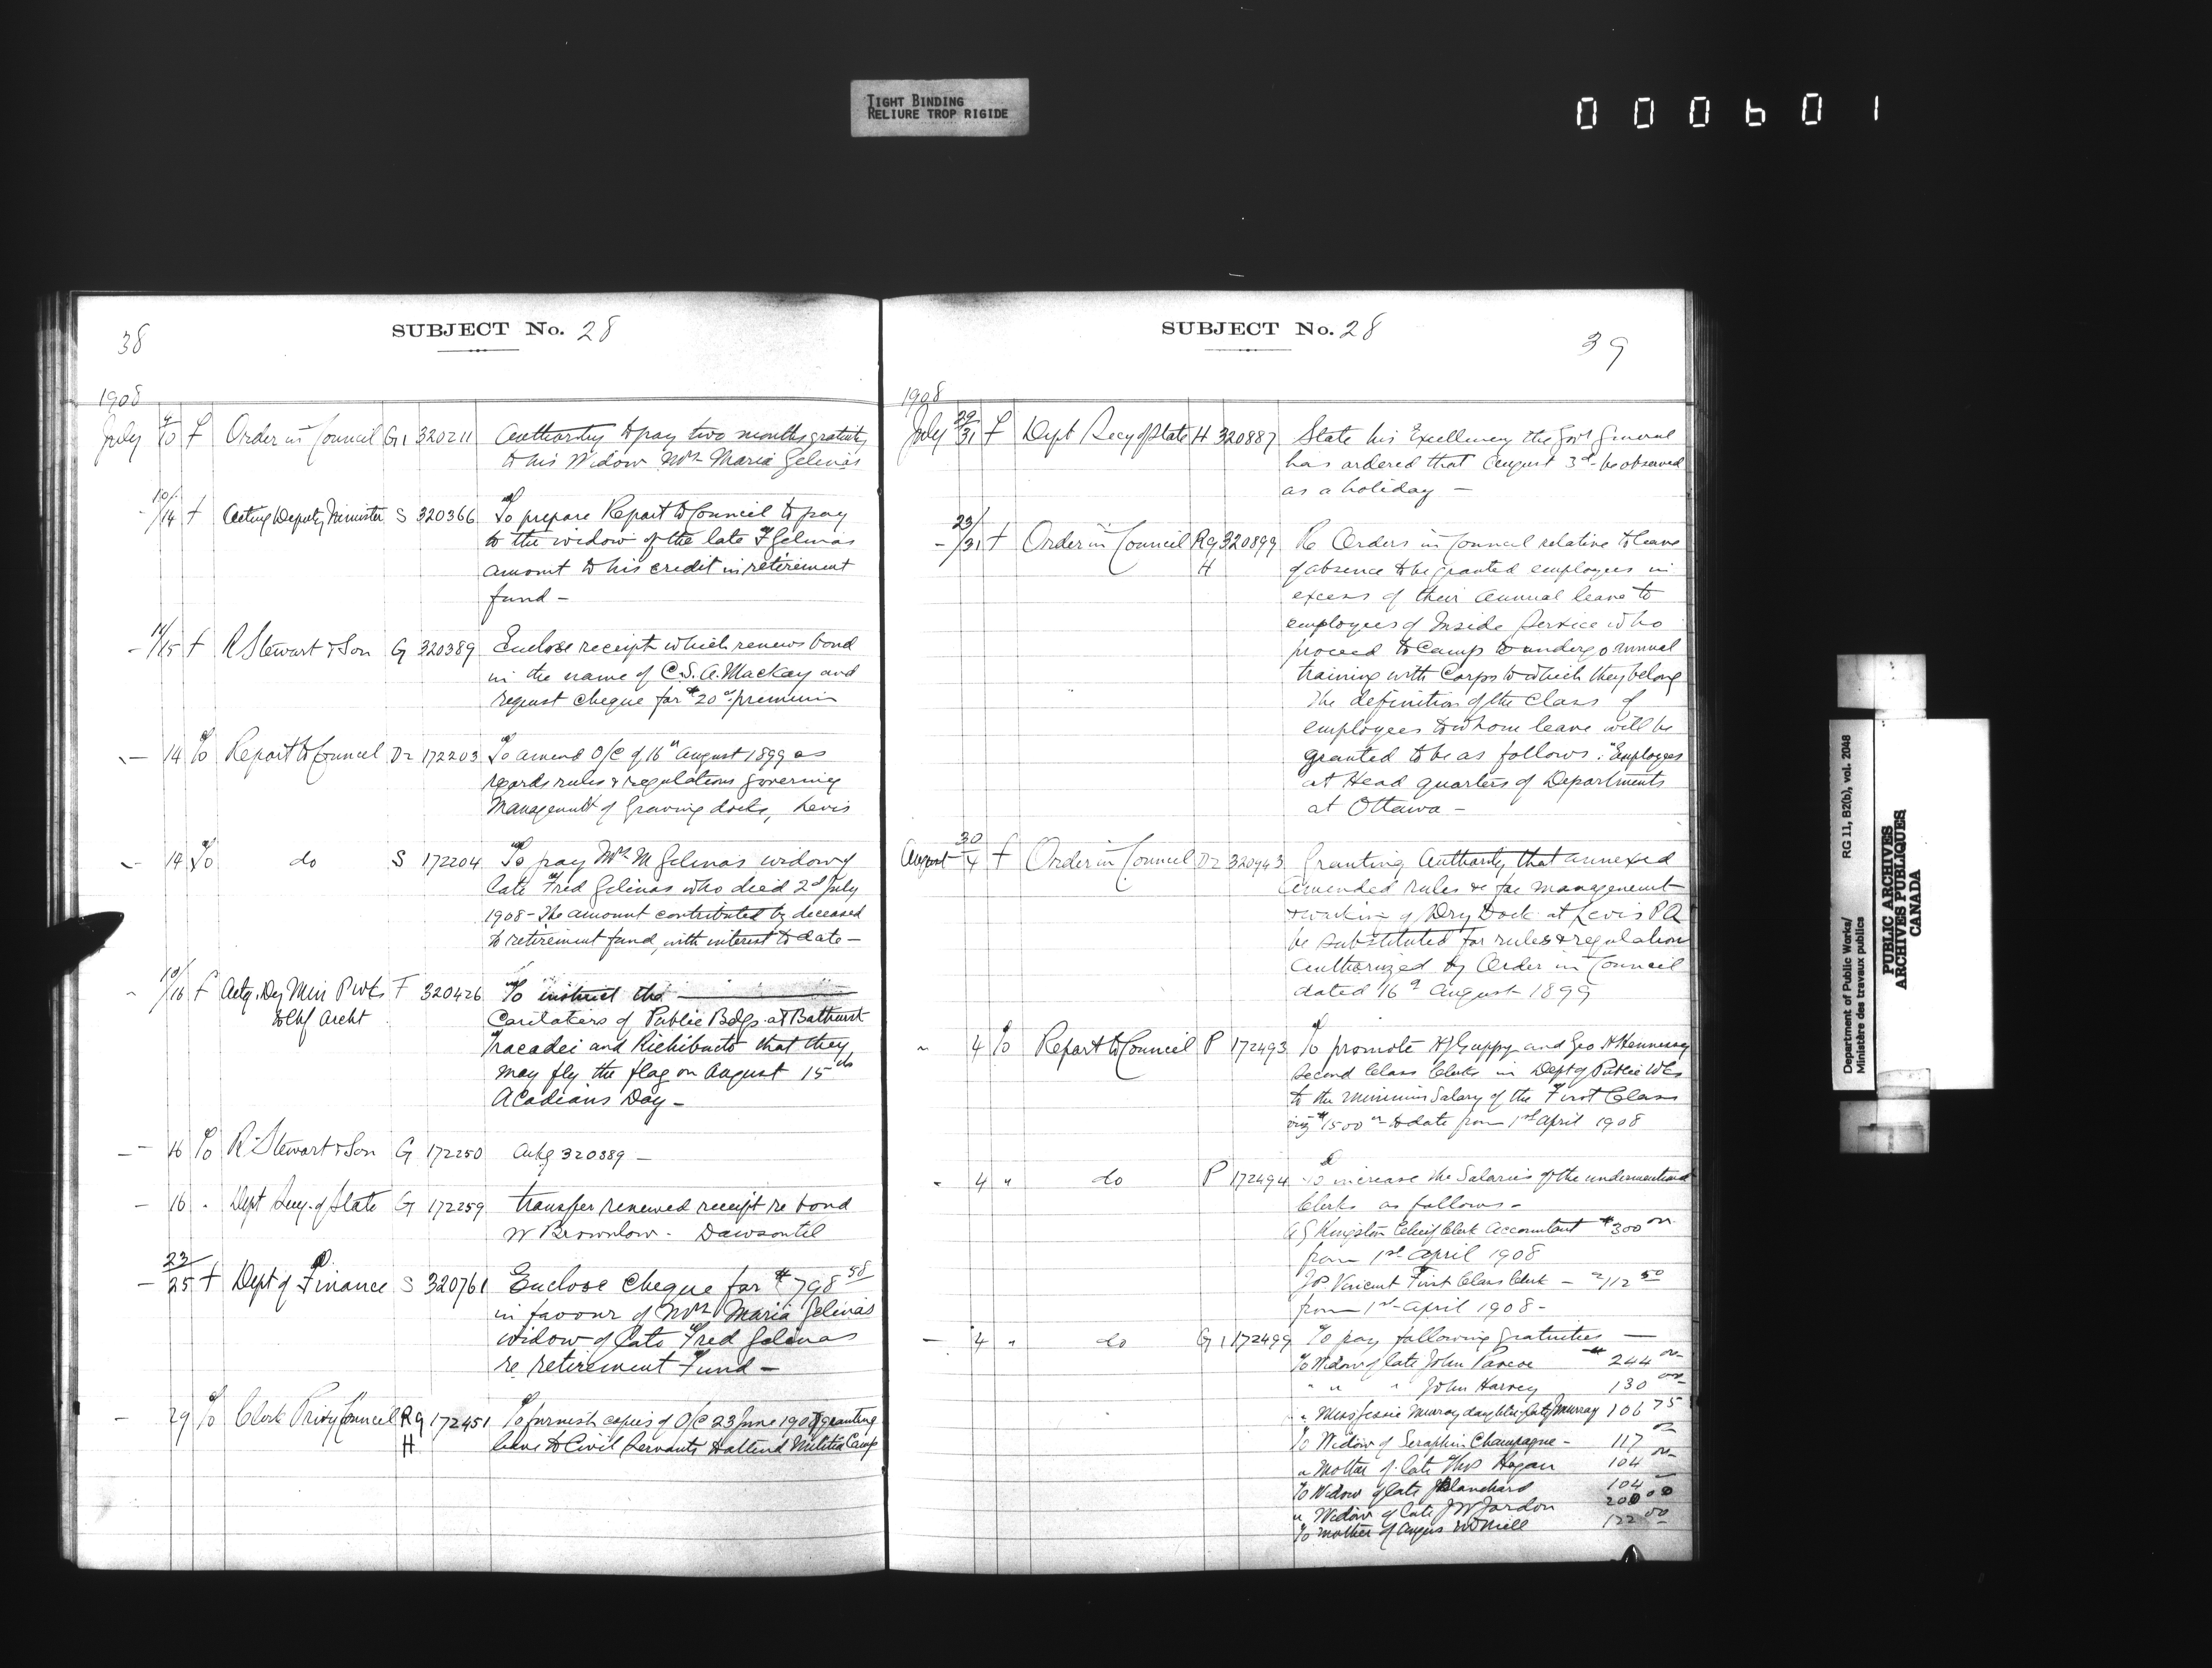 TIGHT BINDING
RELIURE TROP RIGIDE
000601
38
SUBJECT No. 28
1908
July 9/10 f Order in Council G1 320211 Authority to pay two months gratuity
to his Widow Mrs Maria Gelinas
10/14 f Acting Deputy Minister S 320366 To prepare Report to Council to pay
to the widow of the late F Gelinas
amount to his credit in retirement
fund -
- 14/15 f R Stewart & Son G 320389 Enclose receipt which renews bond
in the name of C.S.A. Mackay and
request cheque for $20 premium
- 14 To Report to Council D2 172203 To amend O/C of 16th August 1899 as
regards rules & regulations governing
Management of Graving docks, Levis
- 14 To do S 172204 To pay Mrs M Gelinas widow of
late Fred Gelinas who died 2d July
1908 - The amount contributed by deceased
to retirement fund, with interest to date -
10/16 f Actg. Dey Min P Wks F 320426 To instruct the
to Chf Archt
Caritakers of Public Bdgs. at Bathurst
Tracadei and Richibucto that they
may fly the flag on August 15th
Acadians Day -
- 16 To R Stewart & Son G 172250 Ackg 320389 -
- 16 " Dept Secy. of State G 172259 transfer renewed receipt re bond
W Brownlow - Dawson
23/25 f Dept of Finance S 320761 Enclose Cheque for $798 58
in favour of Mrs Maria Gelinas
widow of late Fred Gelinas
re retirement Fund -
- 29 To Clerk Privy Council Rg 172451 To furnish copies of O/C 23 June 1908 granting
H leave to Civil Servants to attend Militia Camp
SUBJECT No. 28
39
1908
July 29/31 f Dept Secy of State H 320887 State his Excellency the Govr General
has ordered that August 3d be observed
as a holiday -
- 23/31 f Order in Council Rg 320899 Re Orders in Council relative to leave
H of absence to be granted employees in
excess of their annual leave to
employees of Inside Service who
proceed to Camp to undergo annual
training with Corps to which they belong
The definition of the Class of
employees to whom leave will be
granted to be as follows: "Employees
at Head quarters of Departments
at Ottawa -
August 30/4 f Order in Council D2 320943 Granting Authority that annexed
amended rules &c for management
& working of Dry Dock at Levis P.Q
be substituted for rules & regulation
authorized by Order in Council
dated 16th August 1899
" 4 To Report to Council P 172493 To promote H J Guppy and Geo H Hennessy
second Class Clerks in Dept of Public Wks
to the minimum Salary of the First Class
viz $1500 to date from 1st April 1908
" 4 " do P 172494 To increase the Salaries of the undermentioned
Clerks as follows -
A G Kingston Chief Clerk Accountant $300
from 1st April 1908
J P Vincent First Class Clerk - 112 50
from 1st April 1908 -
- 4 " do G1 172499 To pay following gratuities -
To Widow of late John Pascoe $244
" " " John Harvey 130
" Miss Jessie Murray daughter late Murray 106 75
To Widow of Seraphin Champagne - 117
" Mother of late Thos Hogan 104
To Widow of late J Blanchard 104
" Widow of late J W Jardon 200 00
To mother of Angus McNeill 122 00
Department of Public Works/ RG 11, B2(b), vol. 2048
Ministère des travaux publics
PUBLIC ARCHIVES
ARCHIVES PUBLIQUES
CANADA